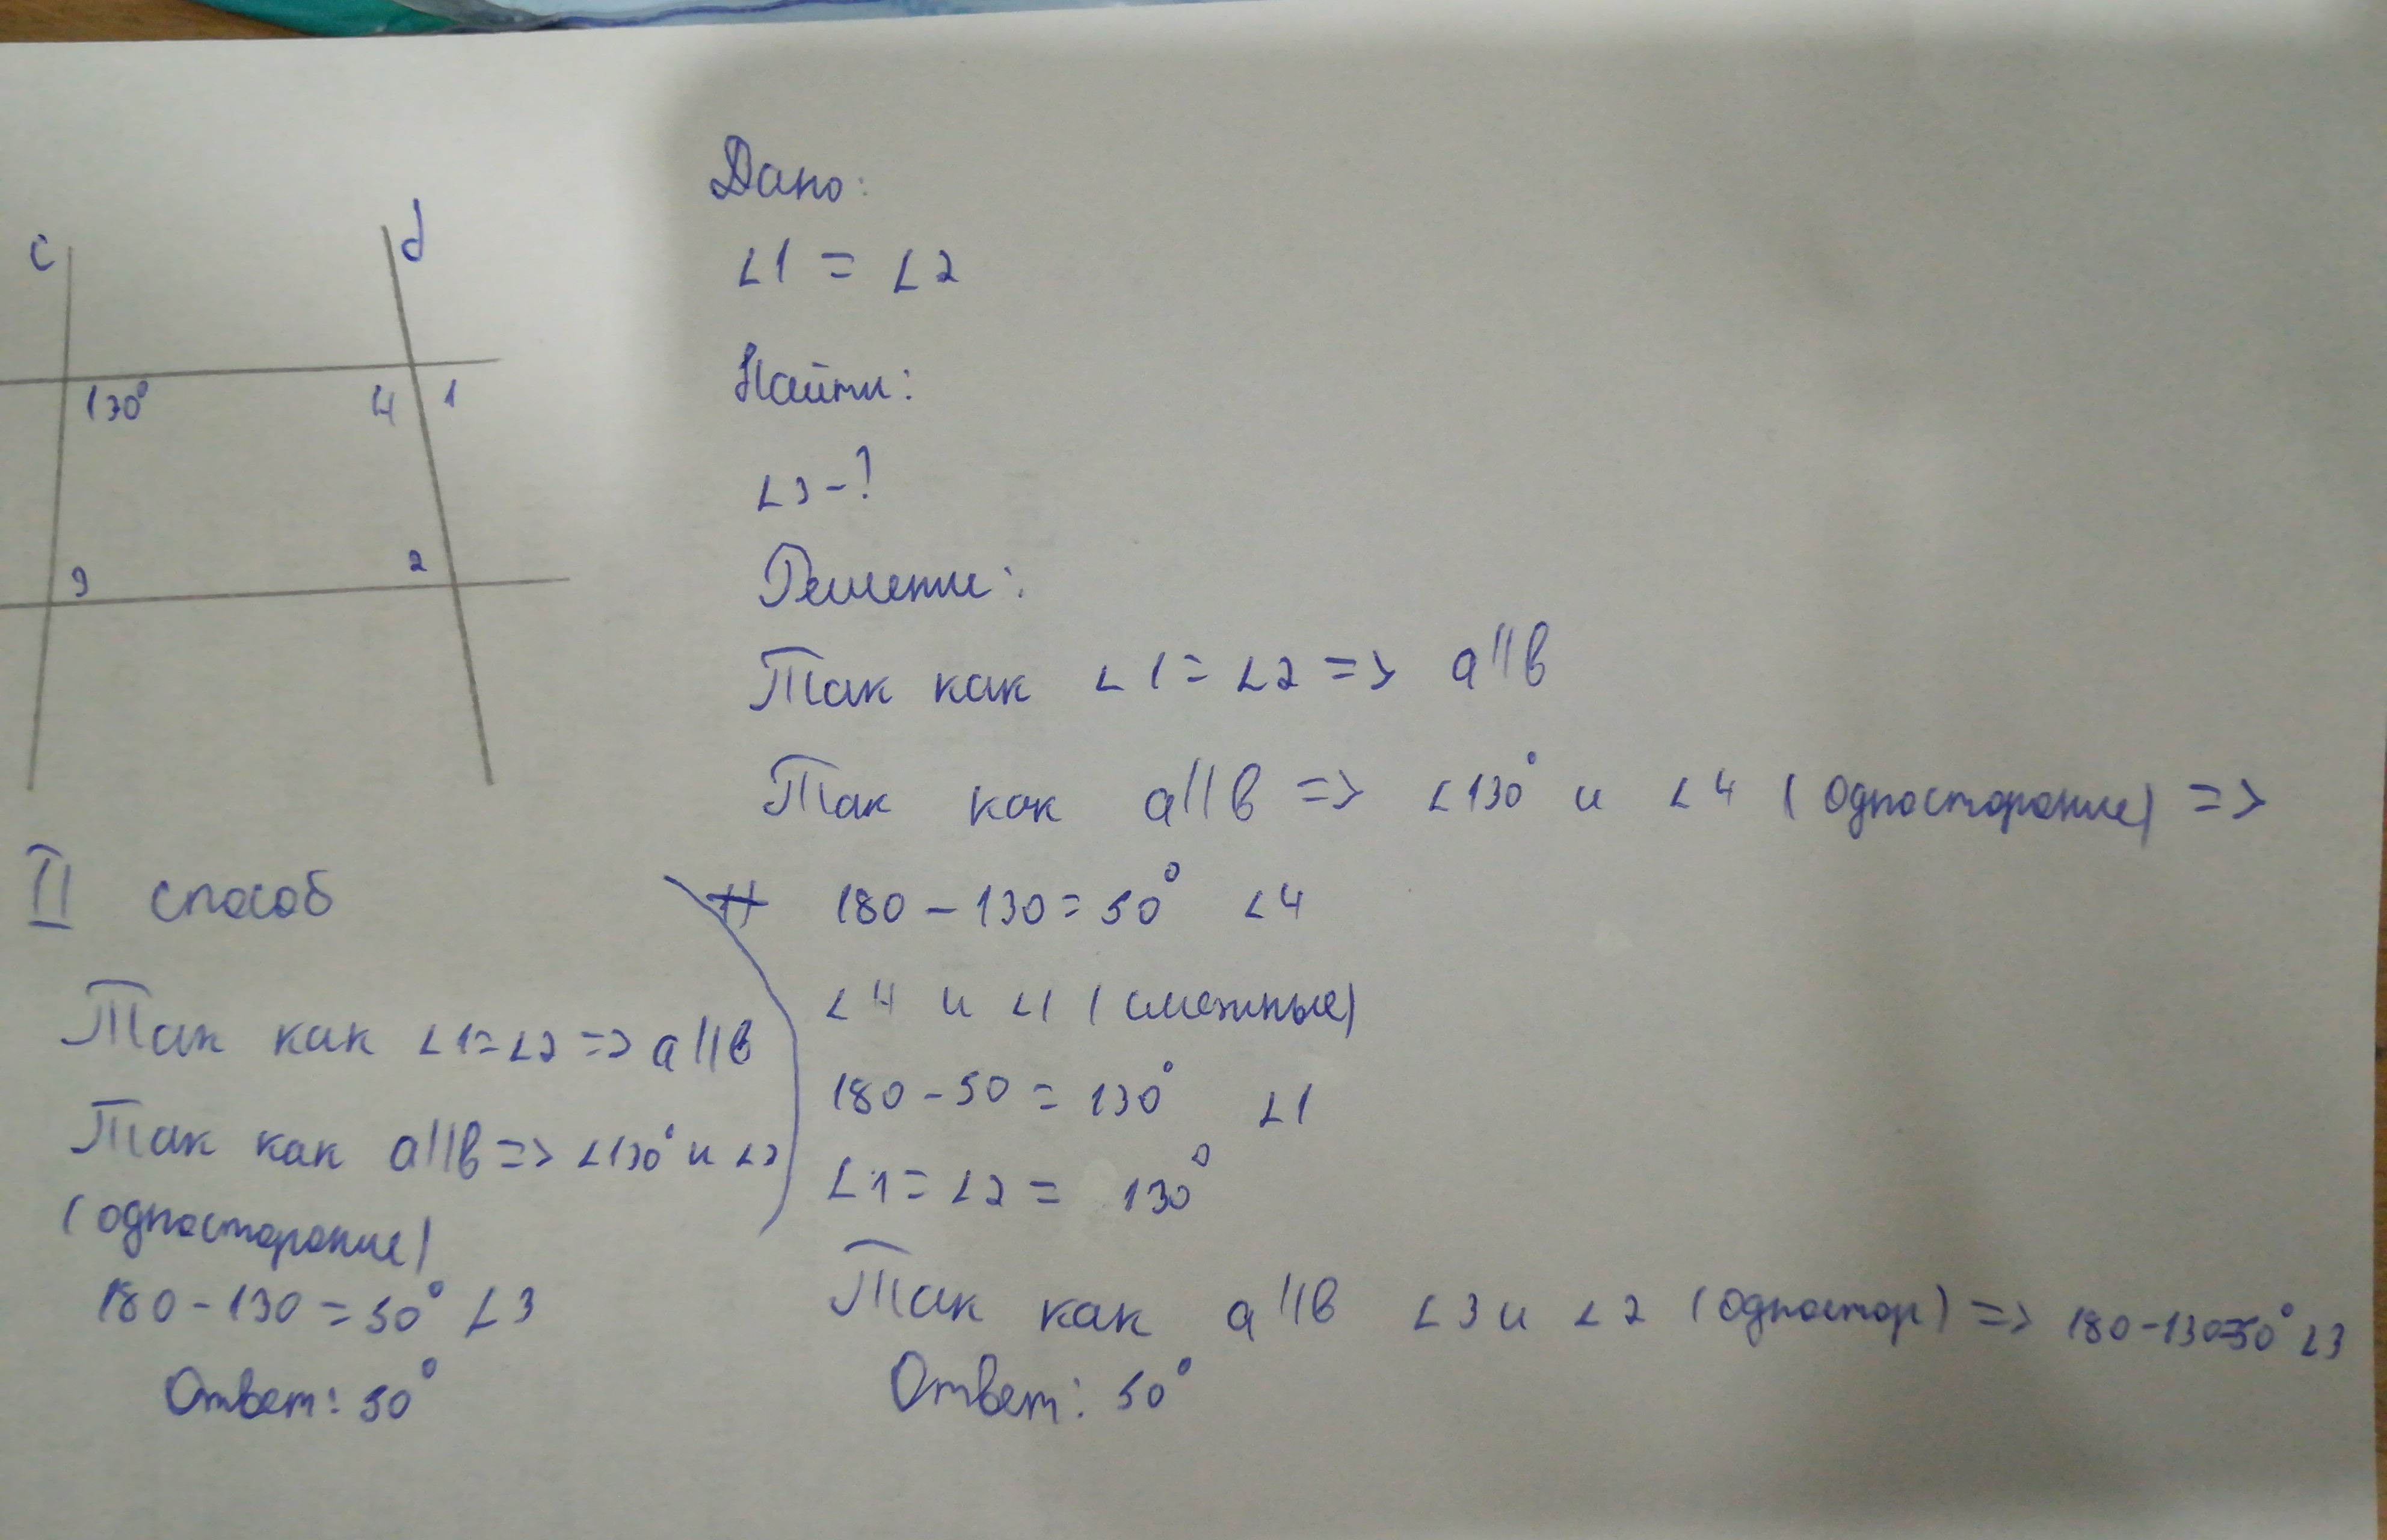 c d
130° 4 1
3 2
Дано:
∠1 = ∠2
Найти:
∠3 - ?
Решение:
Так как ∠1 = ∠2 => a||b
Так как a||b => ∠130° и ∠4 (односторонние) =>
180 - 130 = 50° ∠4
∠4 и ∠1 (смежные)
180 - 50 = 130° ∠1
∠1 = ∠2 = 130°
Так как a||b ∠3 и ∠2 (одностор) => 180-130=50° ∠3
Ответ: 50°
II способ
Так как ∠1=∠2 => a||b
Так как a||b => ∠130° и ∠3
(односторонние)
180 - 130 = 50° ∠3
Ответ: 50°